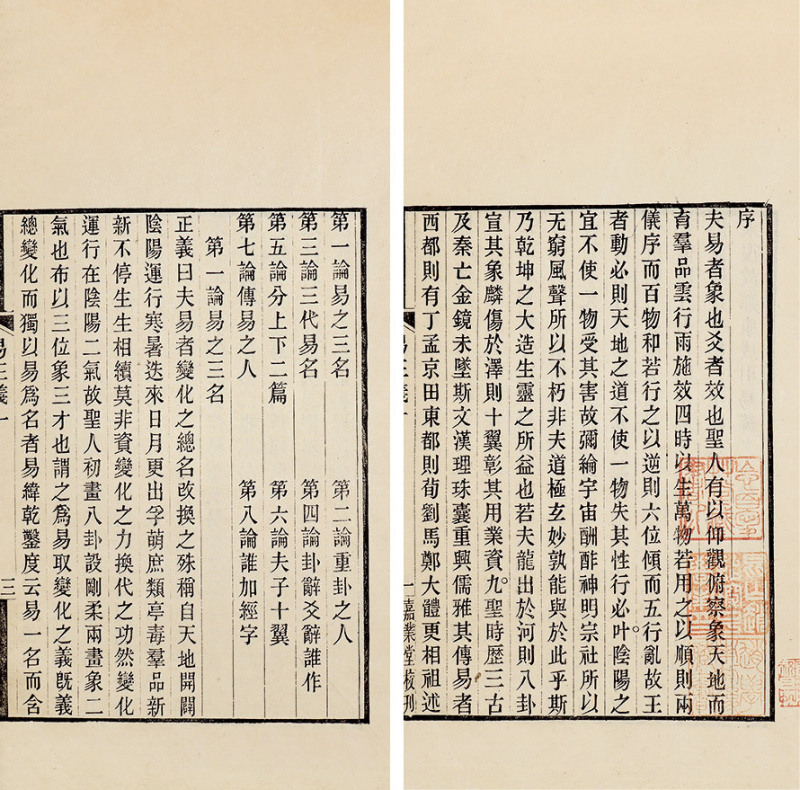 序
夫易者象也爻者效也聖人有以仰觀俯察象天地而
育羣品雲行雨施效四時以生萬物若用之以順則兩
儀序而百物和若行之以逆則六位傾而五行亂故王
者動必則天地之道不使一物失其性行必叶陰陽之
宜不使一物受其害故彌綸宇宙酬酢神明宗社所以
无窮風聲所以不朽非夫道極玄妙孰能與於此乎斯
乃乾坤之大造生靈之所益也若夫龍出於河則八卦
宣其象麟傷於澤則十翼彰其用業資九聖時歷三古
及秦亡金鏡未墜斯文漢理珠囊重興儒雅其傳易者
西都則有丁孟京田東都則荀劉馬鄭大體更相祖述
一 嘉業堂校刊
第一論易之三名 第二論重卦之人
第三論三代易名 第四論卦辭爻辭誰作
第五論分上下二篇 第六論夫子十翼
第七論傳易之人 第八論誰加經字
第一論易之三名
正義曰夫易者變化之總名改換之殊稱自天地開闢
陰陽運行寒暑迭來日月更出孚萌庶類亭毒羣品新
新不停生生相續莫非資變化之力換代之功然變化
運行在陰陽二氣故聖人初畫八卦設剛柔兩畫象二
氣也布以三位象三才也謂之爲易取變化之義既義
總變化而獨以易爲名者易緯乾鑿度云易一名而含
易正義一 三